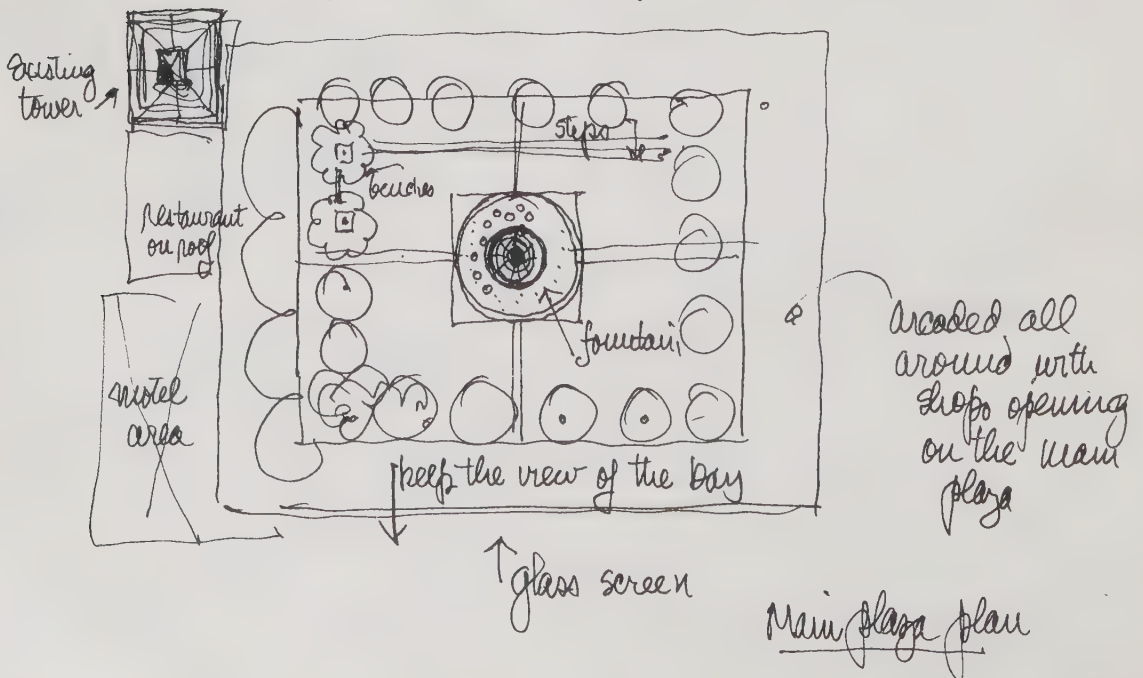 Existing
tower
steps
benches
restaurant
on roof
fountain
arcaded all
around with
shops opening
on the main
plaza
motel
area
keep the view of the bay
glass screen
Main plaza plan